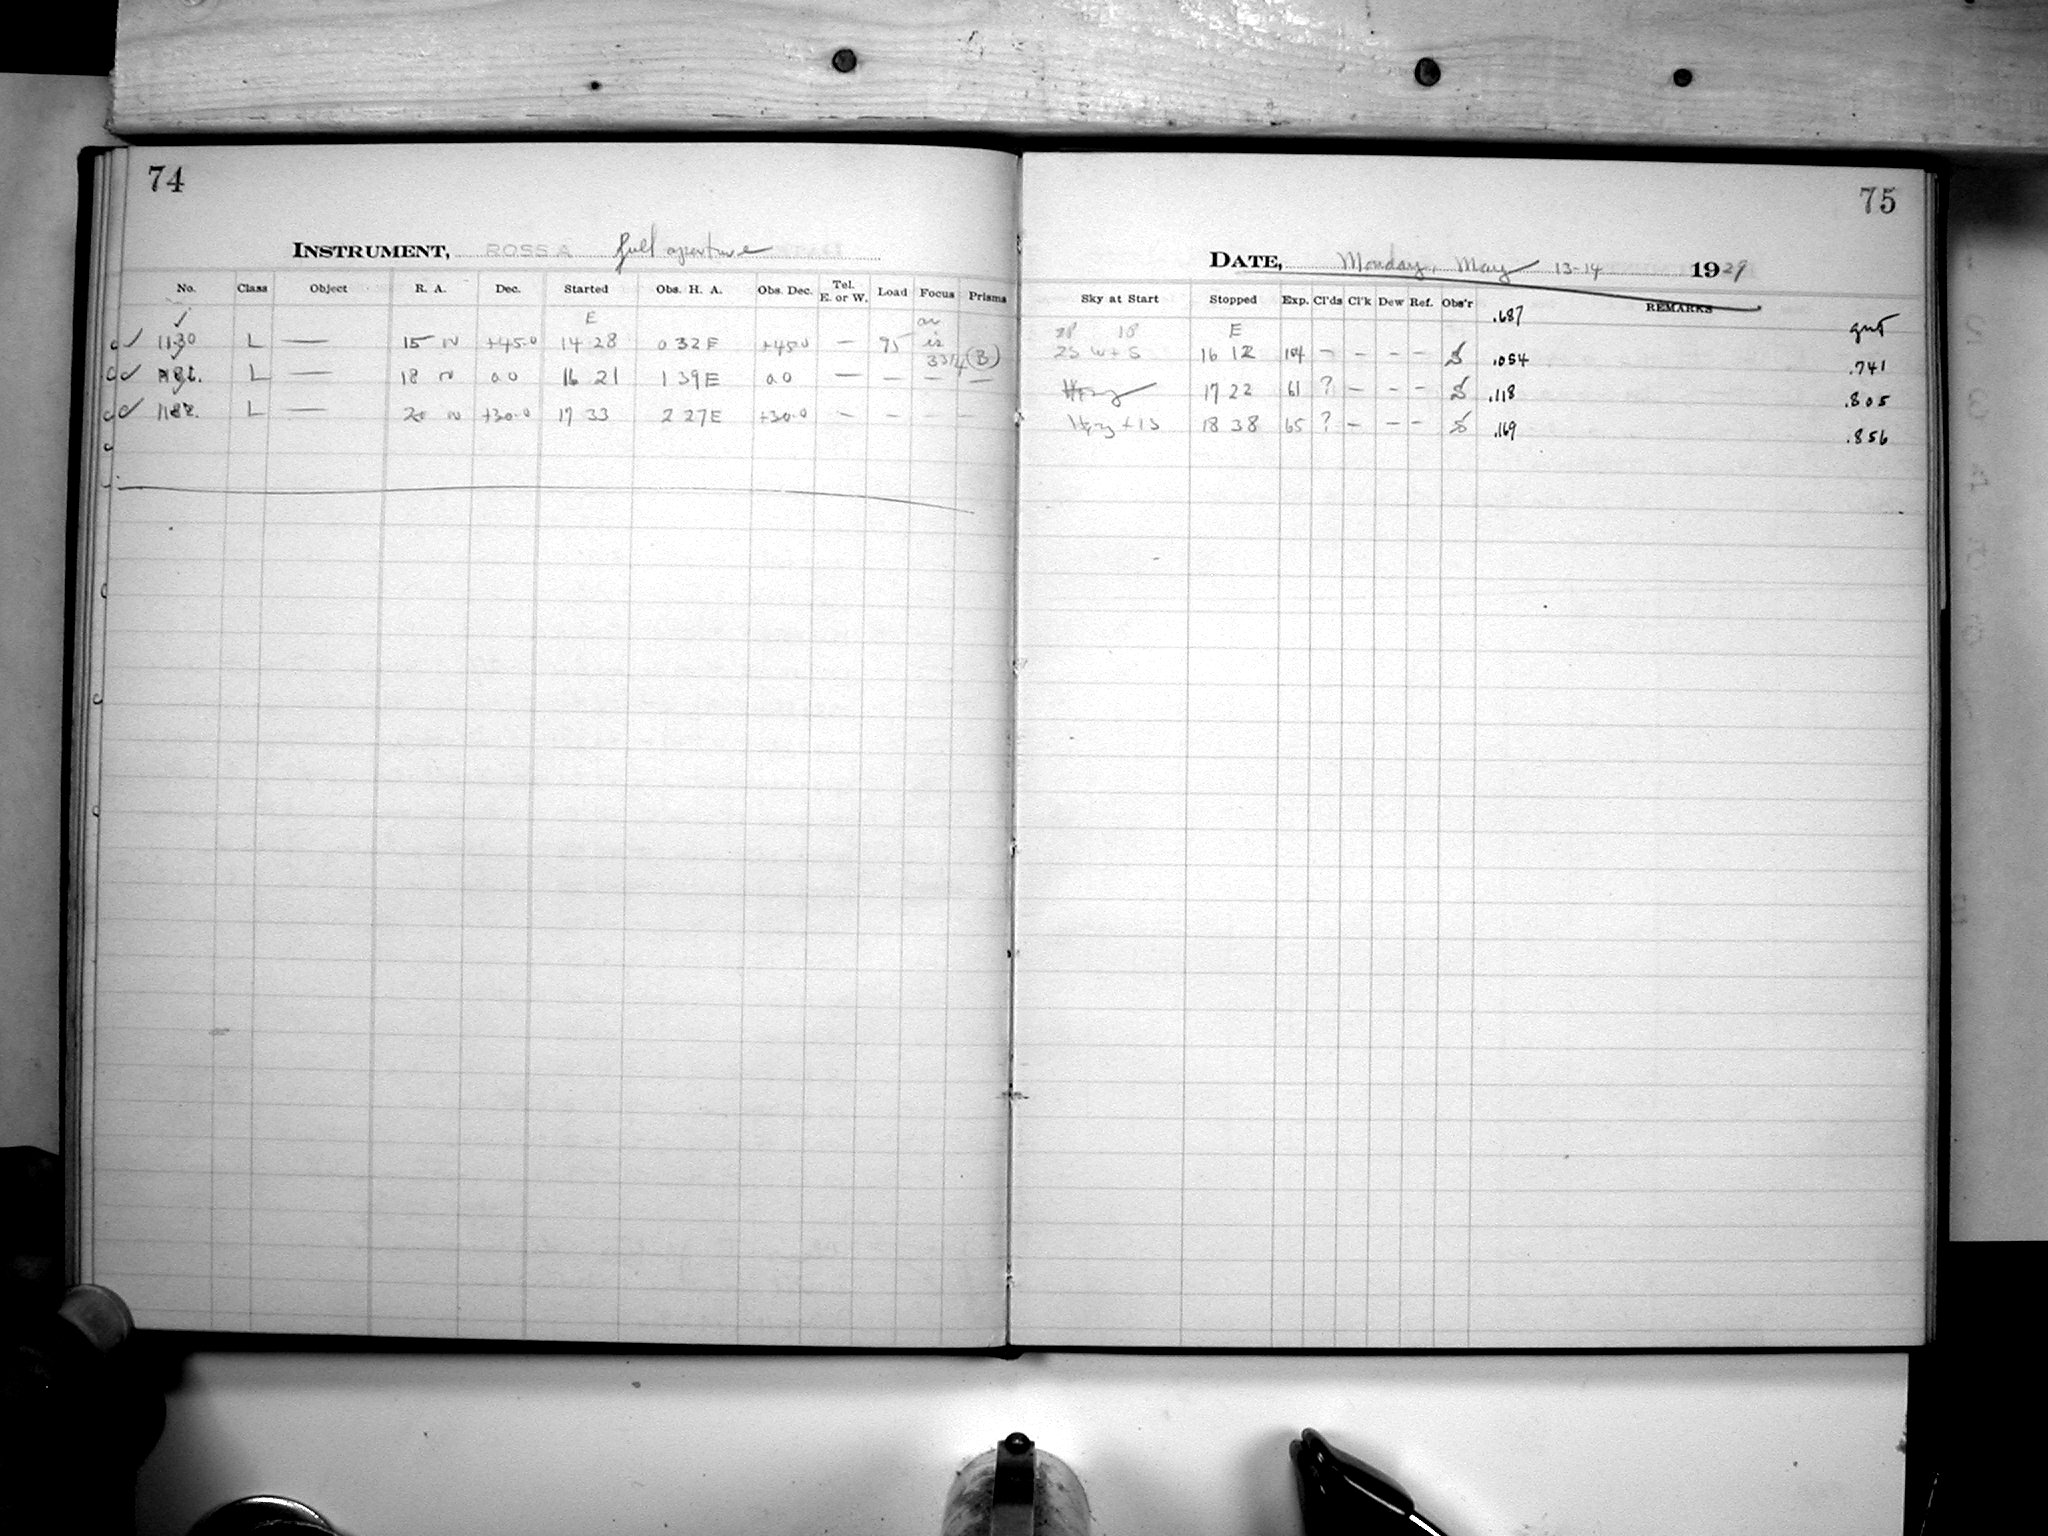 74
INSTRUMENT, ROSS A full aperture
No. Class Object R. A. Dec. Started Obs. H. A. Obs. Dec. Tel. E. or W. Load Focus Prisms
E
✓ 1180 L — 15 N +45.0 14 28 0 32 E +45.0 — 95 33 1/4 (B)
✓ 1181. L — 18 N 0.0 16 21 1 39 E 0.0 — — — —
✓ 1182. L — 20 N +30.0 17 33 2 27 E +30.0 — — — —
75
DATE, Monday, May 13-14 1929
Sky at Start Stopped Exp. Cl'ds Cl'k Dew Ref. Obs'r REMARKS
E .687 gmt
2S W + S 16 12 104 — — — — S .054 .741
Hazy 17 22 61 ? — — — S .118 .805
Hazy + 1S 18 38 65 ? — — — S .169 .856